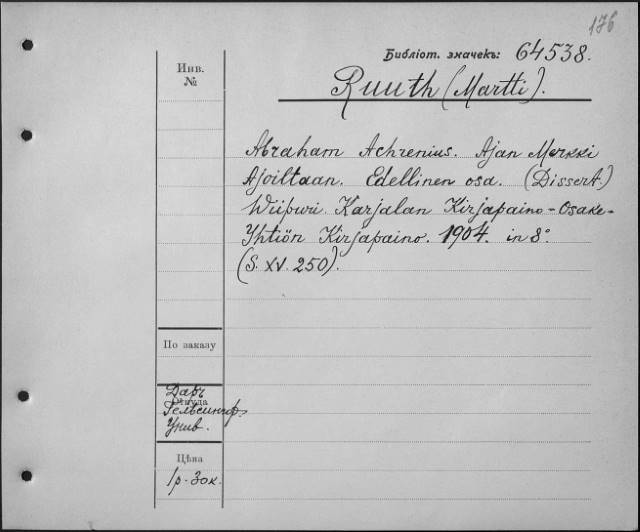 176
Библіот. значекъ: 64538.
Инв.
№
Ruuth (Martti).
Abraham Achrenius. Ajan Merkki
Ajoiltaan. Edellinen osa. (Dissert.)
Wiipuri. Karjalan Kirjapaino-Osake-
Yhtiön Kirjapaino. 1904. in 8°.
(S. XV. 250).
По заказу
Откуда
Даръ
Гельсингф.
Унив.
Цѣна
1р. 30к.